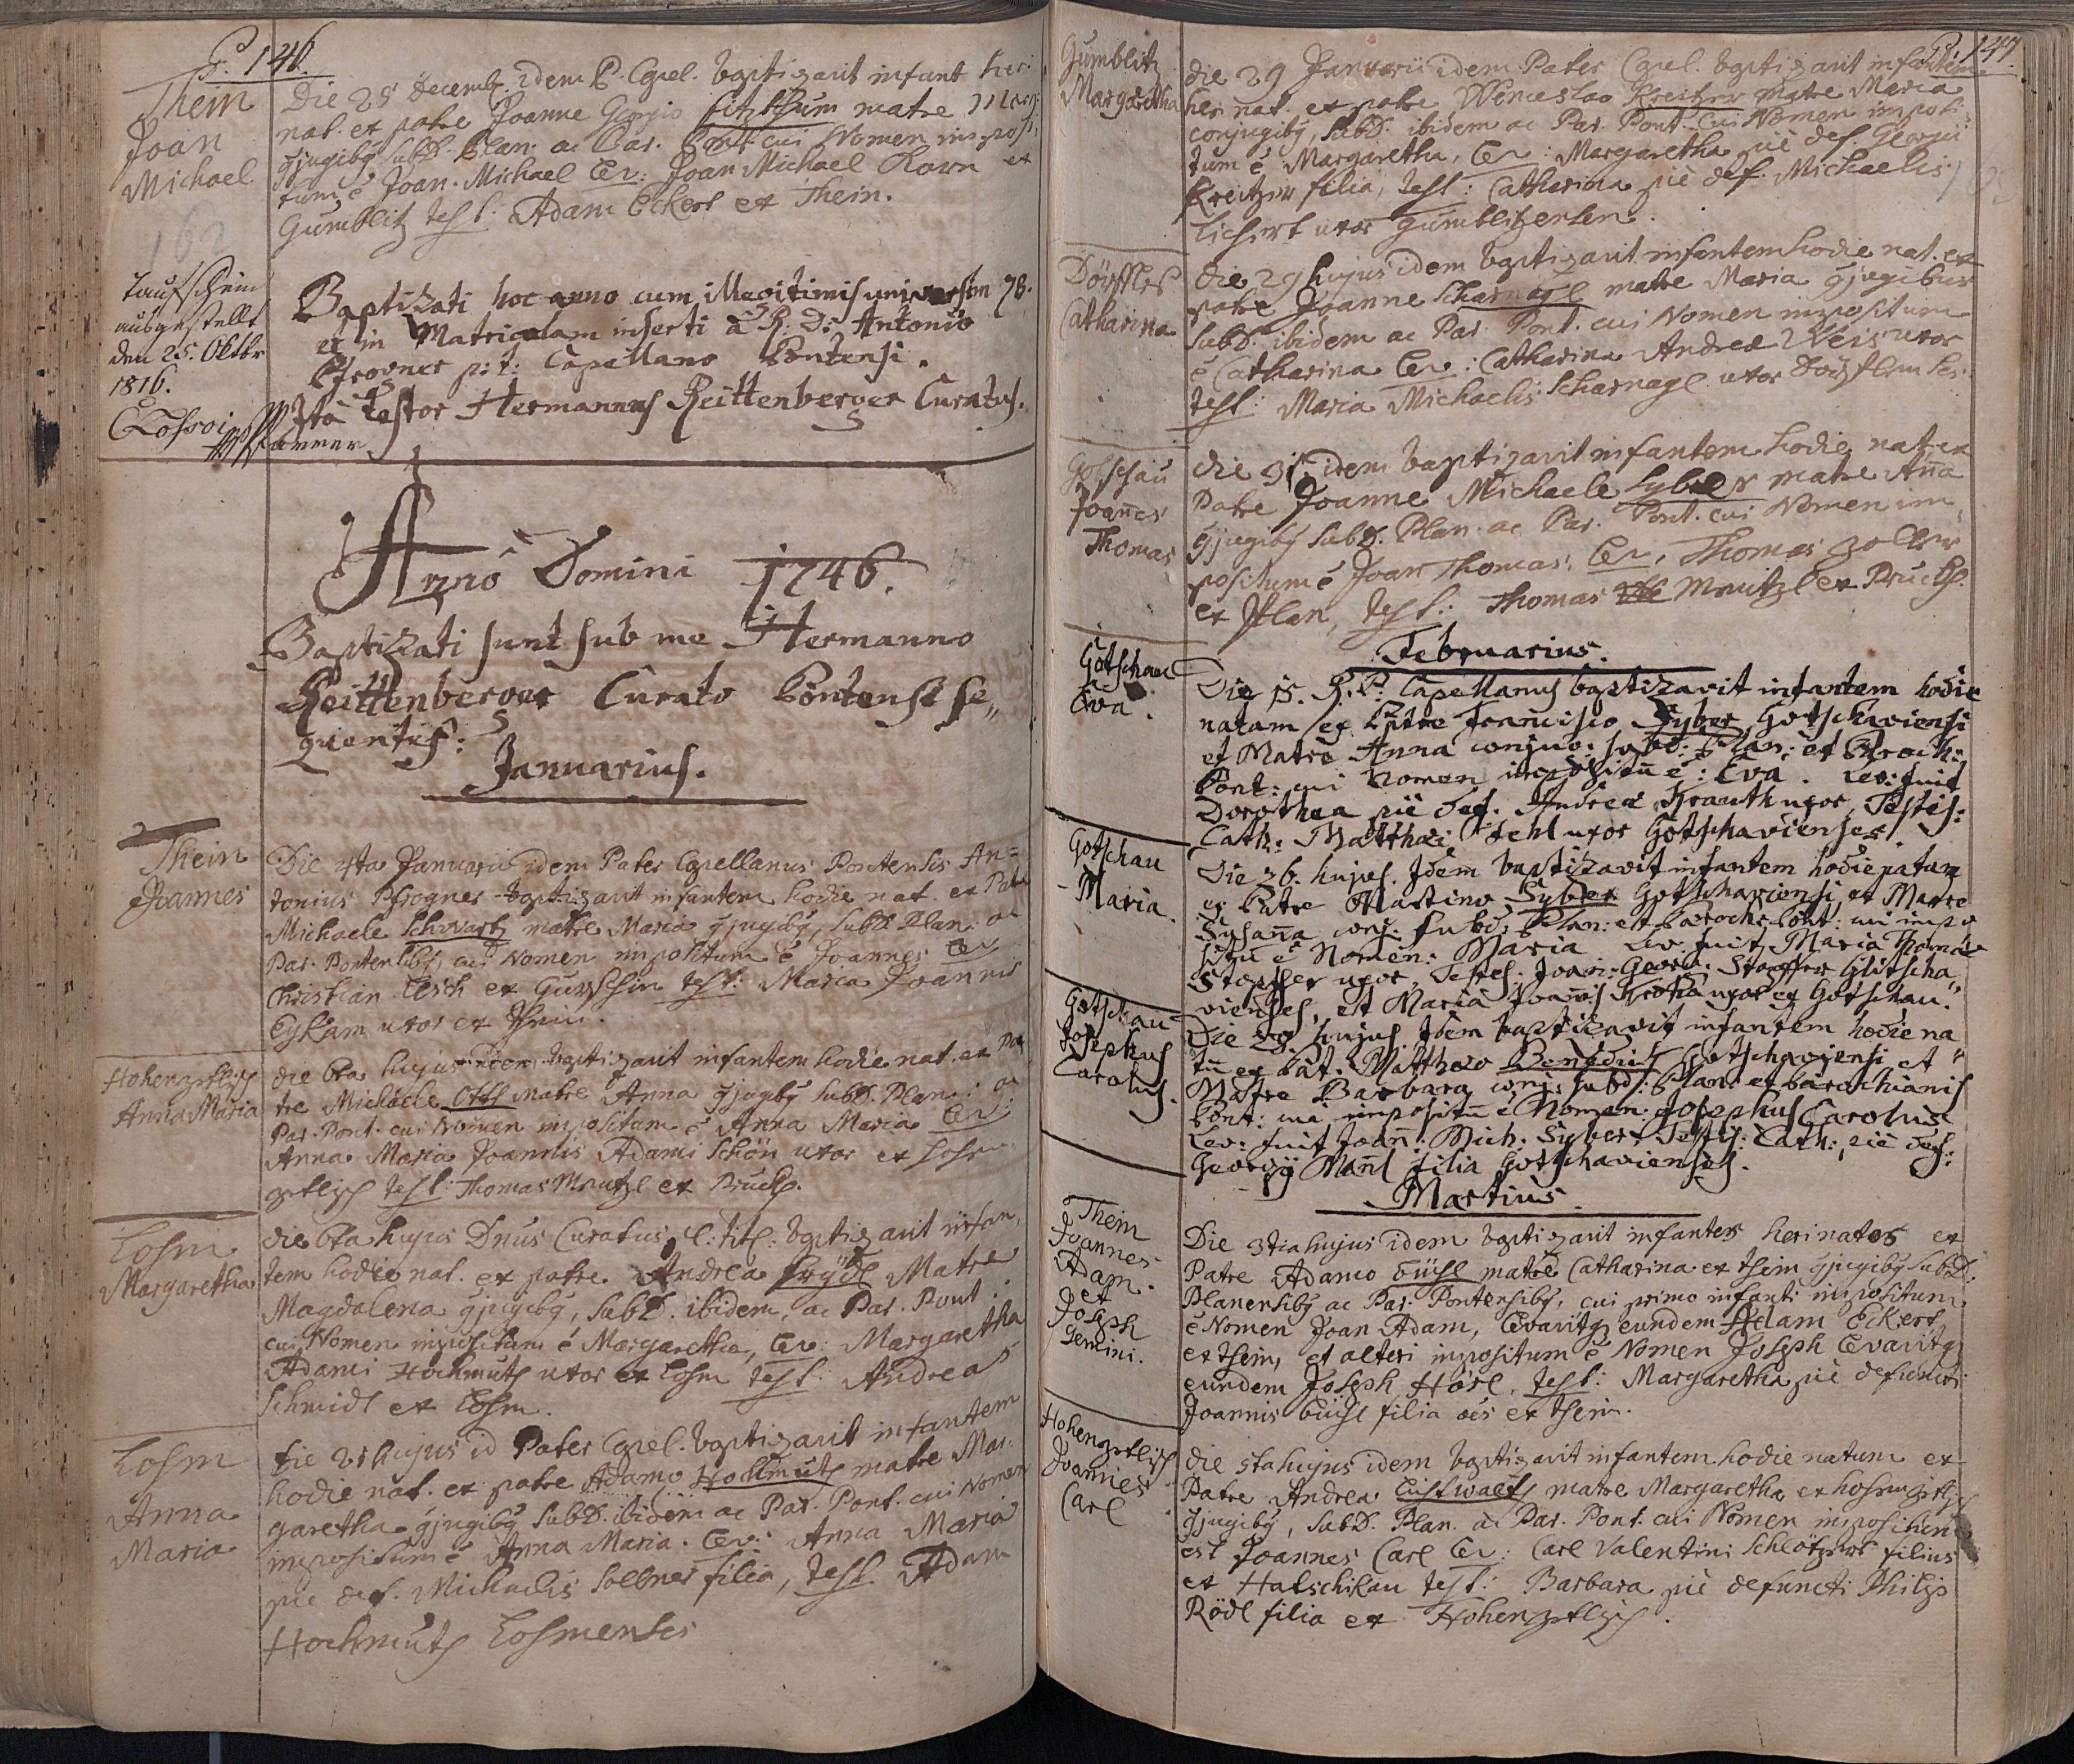 P. 146.
Thein
Joan
Michael
Die 28 Decemb. idem P. Capel. baptizavit infant heri
nat. ex patre Joanne Georgio Fitzthum matre Marg:
gjugibq subd. Plan. ac Par. Pont. cui Nomen imposi:
tum ē Joan. Michael Lev: Joan Michael Korn ex
Gumblitz test: Adam Eckert ex Thein.
162
Taufschein
ausgestellt
den 25. Oktbr
1816.
Pfarrer
Baptizati hoc anno cum illegitimis universim 78.
et in Matriculam inserti à R: D: Antonio
Pfrogner p: t: Capellano Pontensi.
Ita testor Hermannus Reittenberger Curatus.
Anno Domini 1746.
Baptizati sunt sub me Hermanno
Reittenberger Curato Pontensi se„
quentes:
Januarius.
Thein
Joannes
Die 4ta Januarii idem Pater Capellanus Pontensis An=
tonius Pfrogner baptizavit infantem hodie nat. ex Patre
Michaele Schwartz matre Maria gjugibq, subd. Plan. ac
Par. Pontensibq, cui Nomen impositum ē Joannes Lev
Christian Lesch ex test: Maria Joannis
uxor ex Thein.
Hohenzetlisch
Anna Maria
die 6ta hujus idem baptizavit infantem hodie nat. ex Pa
tre Michaele Ott matre Anna gjugibq subd. Plan: ac
Par. Pont. cui Nomen impositum ē Anna Maria Lev:
Anna Maria Joannis Adami Schön uxor ex Hohen
zetlisch test: Thomas Mrutzl ex Pruch.
Losm
Margaretha
die 6ta hujus Dnus Curatus baptizavit infan,
tem hodie nat. ex patre Andrea Matre
Magdalena gjugibq, subd. ibidem, ac Par. Pont.
cui Nomen impositum ē Margaretha, Lev: Margaretha
Adami Hochmuth uxor ex Losm test: Andrea
Schmidt ex Losm.
Losm
Anna
Maria
Die 21 hujus id Pater Capel. baptizavit infantem
hodie nat. ex patre Adamo Hochmuth matre Mar,
garetha gjugibq subd. ibidem ac Par. Pont. cui Nomen
impositum ē Anna Maria. Lev: Anna Maria
pie def. Michaelis Sollner filia, test. Adam
Hochmuth Losmenses
P. 147.
Gumblitz
Margaretha
die 29 Januarii idem Pater Capel. baptizavit infantem
heri nat. ex patre Wenceslao Kreitzer matre Maria
conjugibq, subd. ibidem ac Par. Pont. cui Nomen imposi
tum ē Margaretha, Lev: Margaretha pie def. Georgii
Kreitzer filia, test: Catharina pie def. Michaelis
uxor Gumblitzenses.
Dörfles
Catharina
die 29 hujus idem baptizavit infantem hodie nat. ex
patre Joanne Scharnagl matre Maria gjugibus
subd. ibidem ac Par. Pont. cui Nomen impositum
ē Catharina Lev: Catharina Andreæ Weis uxor
test: Maria Michaelis Scharnagl uxor Dörflenses.
Gotschau
Joannes
Thomas
die 31 idem baptizavit infantem hodie nat ex
Patre Joanne Michaele Syber matre Anna
gjugibq subd. Plan. ac Par. Pont. cui Nomen im,
positum ē Joan Thomas, Lev, Thomas Zoller
ex Plan, test: Thomas Mrutzl ex Pruch.
Februarius.
Gotschau
Eva.
Die 15. R. P. Capellanus baptizavit infantem hodie
natam ex Patre Francisco Syber Gotschaviensi
et Matre Anna conjug: subd: Plan: et Paroch:
Pont: cui nomen impositū ē: Eva. Lev: fuit
Dorothea piè def. Andreæ Krauth uxor, Testis:
Cath: Matthæi Fehl uxor Gotschavienses.
Gotschau
Maria.
Die 26. hujus. Idem baptizavit infantem hodie natam
ex Patre Martino Syber Gotschaviensi, et Matre
Susanna conj. subd: Plan: et Paroch: Pont: cui impo
sitū ē Nomen: Maria Lev. fuit Maria Thomæ
Stopffer uxor, Testes: Joan: Georg: Stopffer Gotscha„
vienses, et Maria Joannis Kroha uxor ex Gotschau.
Gotschau
Josephus
Carolus.
Die 29. hujus. Idem baptizavit infantem hodie na
tū ex Pat. Matthæo Benedict Gotschaviensi et
Matre Barbara conj: subd: Plan: et Parochianis
Pont: cui impositū ē Nomen Josephus Carolus
Lev: fuit Joann: Mich. Syber, Testis: Cath: piè def:
Georgÿ Mannl filia Gotschavienses.
Martius.
Thein
Joannes
Adam.
et
Joseph
Gemini.
Die 3tia hujus idem baptizavit infantes heri natos ex
Patre Adamo Büchl matre Catharina ex Thein gjugibq subd.
Planensibq ac Par. Pontensibq, cui primo infanti impositum
ē Nomen Joan Adam, Levavitq eundem Adam Eckert
ex Thein, et alteri impositum ē Nomen Joseph Levavitq
eundem Joseph Hörl, test: Margaretha pie defuncti
Joannis Büchl filia oēs ex Thein.
Hohenzetlisch
Joannes
Carl
die 5ta hujus idem baptizavit infantem hodie natum ex
Patre Andrea matre Margaretha ex Hohenzetl:
gjugibq, subd. Plan. ac Par. Pont. cui Nomen impositum
est Joannes Carl Lev: Carl Valentini Schlötzer filius
ex Hatschikau test: Barbara pie defuncti Philip
Rödl filia ex Hohenzetlisch.